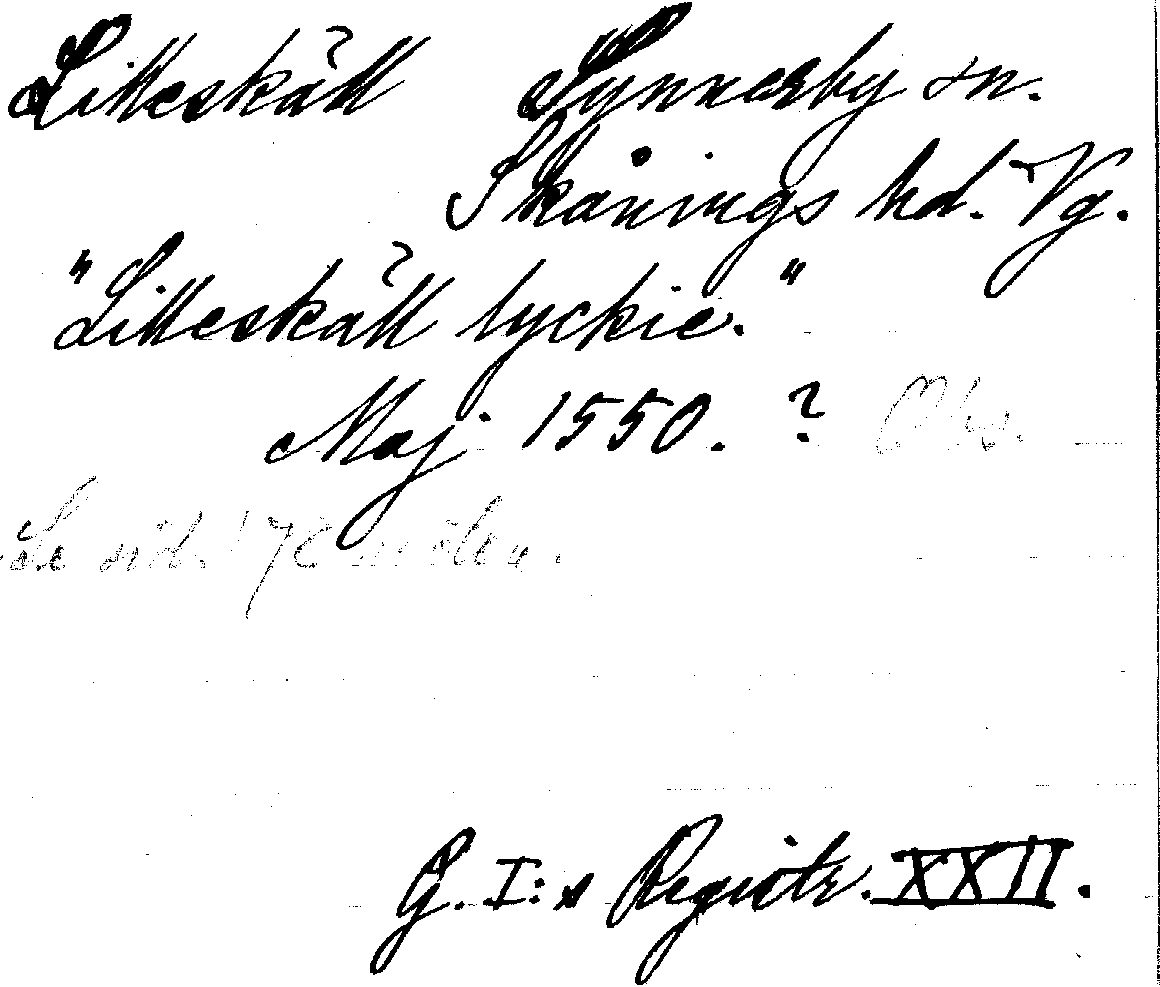 Litleskätt Synnerby sn.
Skånings hd. Vg.
"Litleskätt lyckie."
Maj 1550. ? Obs.
Se
G. I:s Registr. XXII.